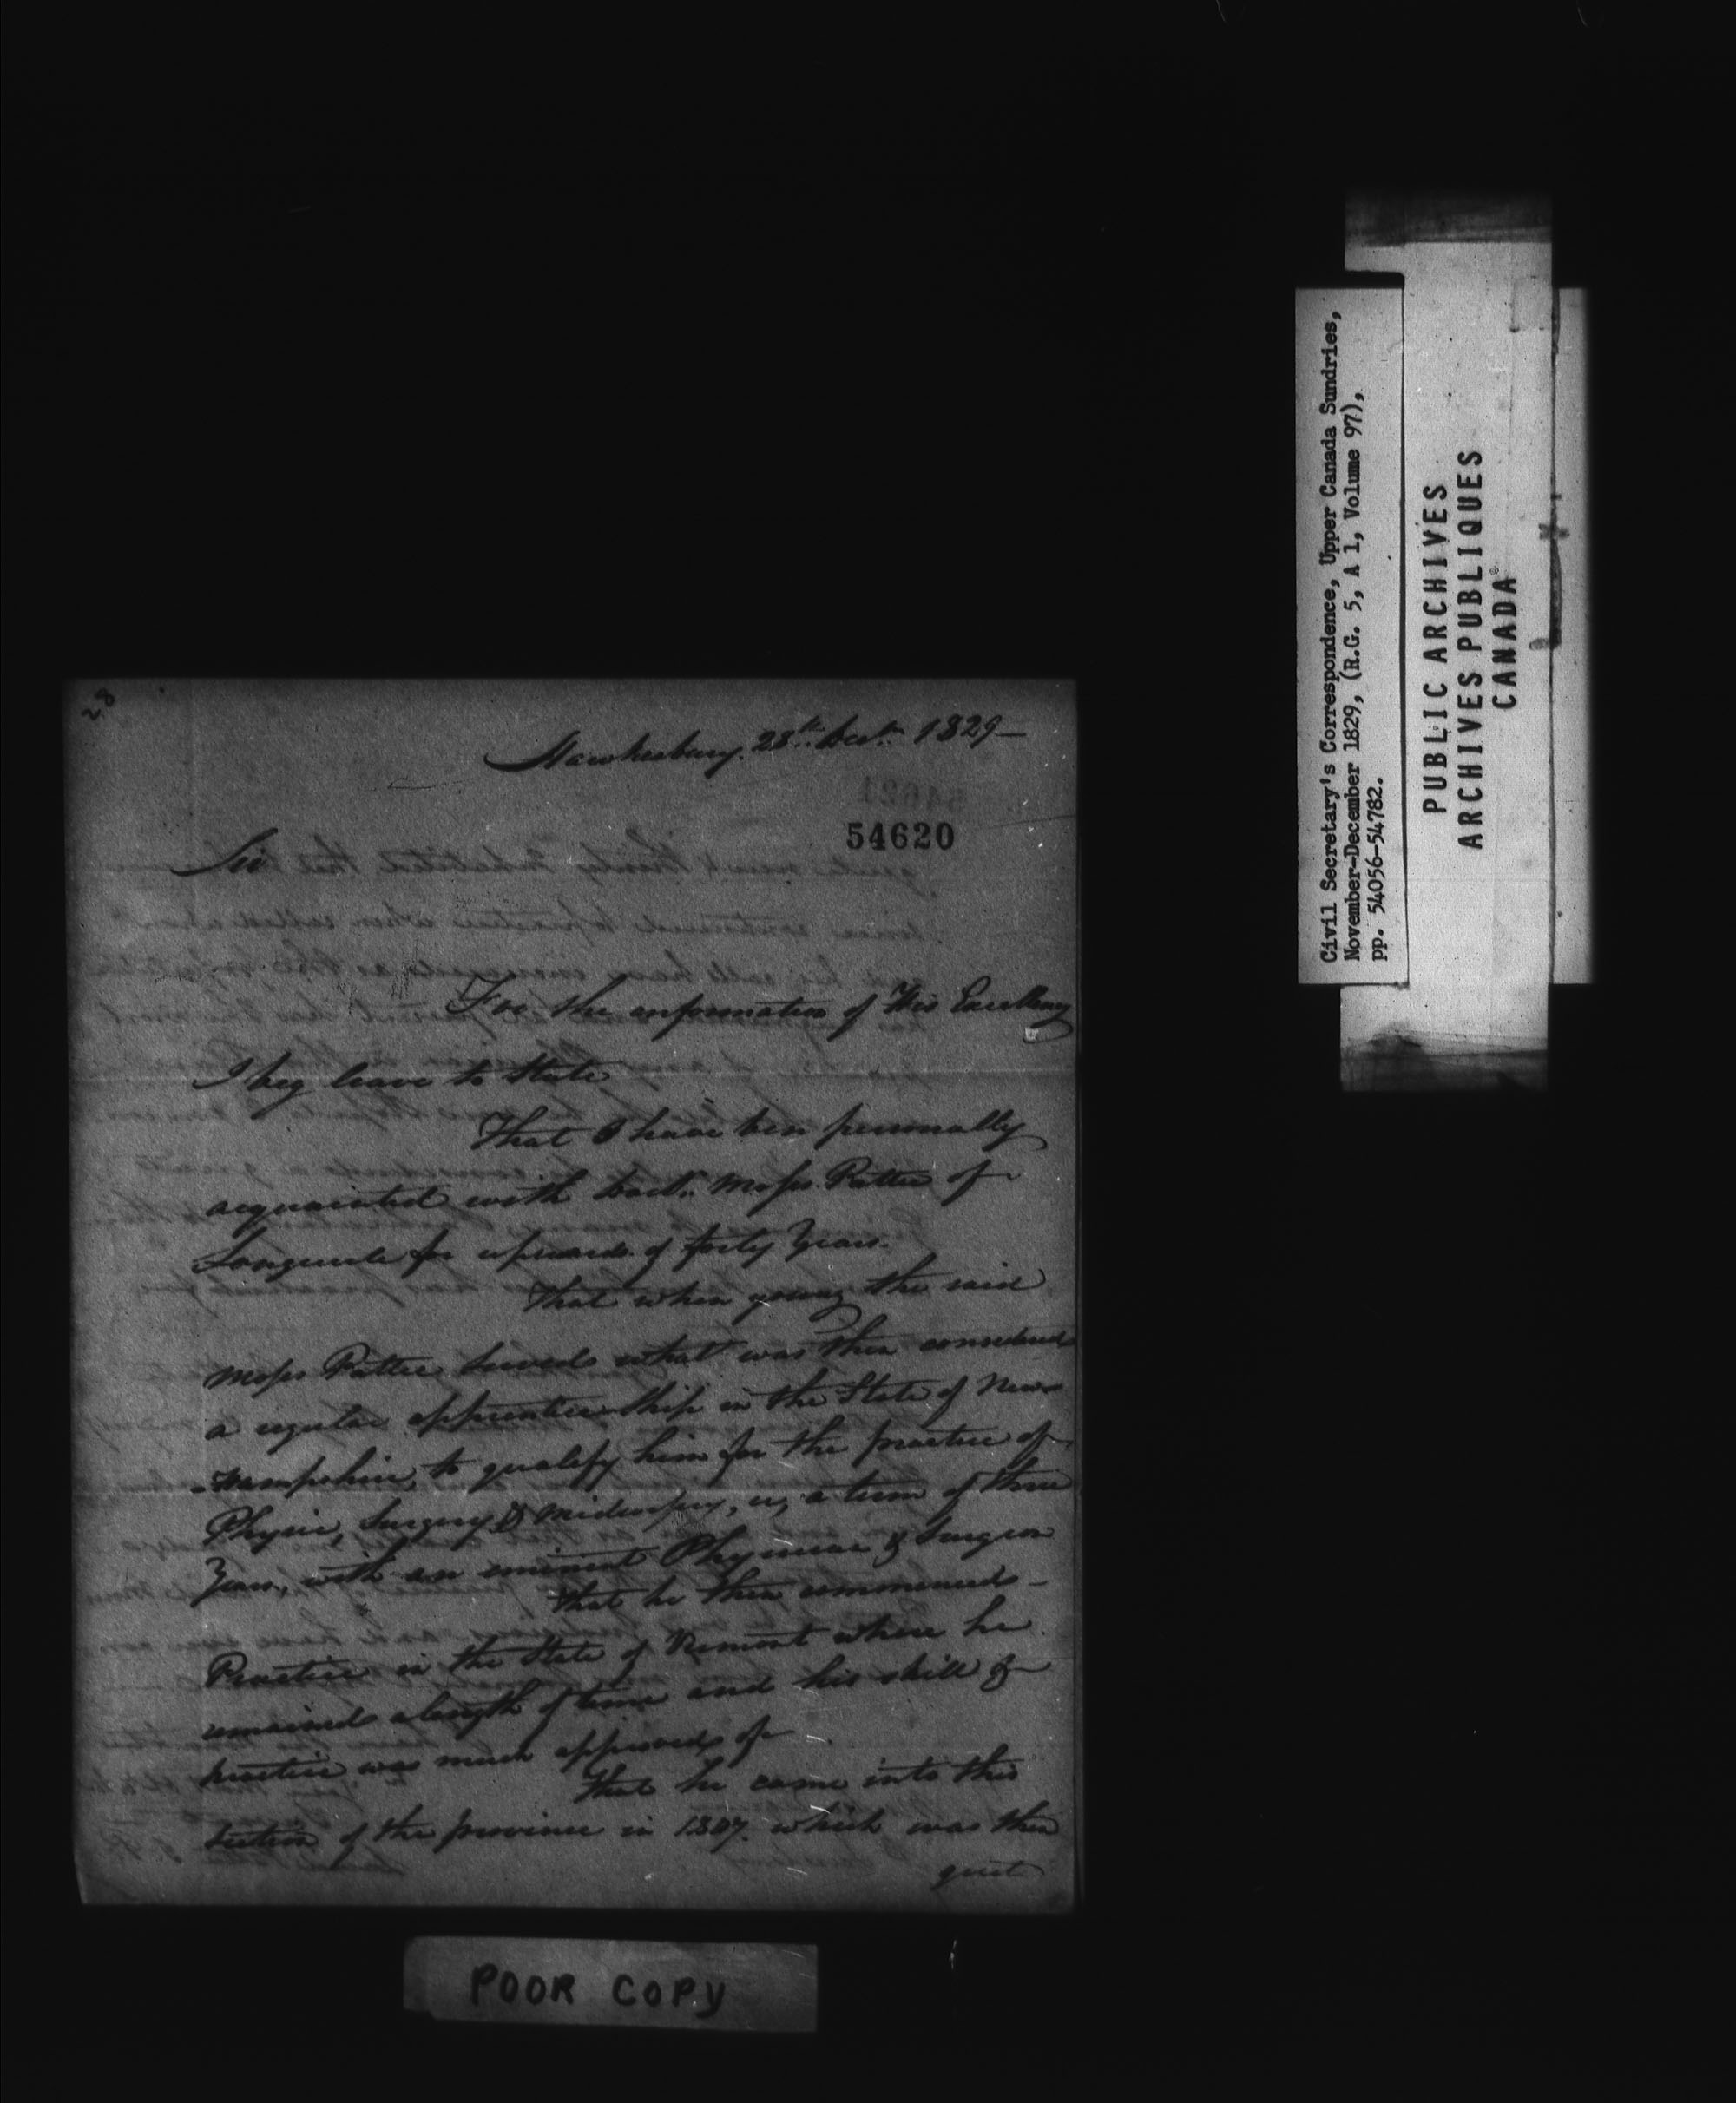 28
Hawkesbury. 28th Decr. 1829—
54620
Sir
For the information of His Excellency
I beg leave to State
That I have been personally
acquainted with Doctr. Moses Pattee of
Longueuil for upwards of forty Years.
That when young the said
Moses Pattee served what was then considered
a regular apprenticeship in the State of New
-Hampshire, to qualify him for the practice of
Physic, Surgery & midwifery, a term of three
Years, with an eminent Physician & Surgeon
That he then commenced
Practice in the State of Vermont where he
remained a length of time and his skill &
practice was much approved of
That he came into this
section of the province in 1807. which was then
quit
POOR COPY
Civil Secretary's Correspondence, Upper Canada Sundries,
November-December 1829, (R.G. 5, A 1, Volume 97),
pp. 54056-54782.
PUBLIC ARCHIVES
ARCHIVES PUBLIQUES
CANADA